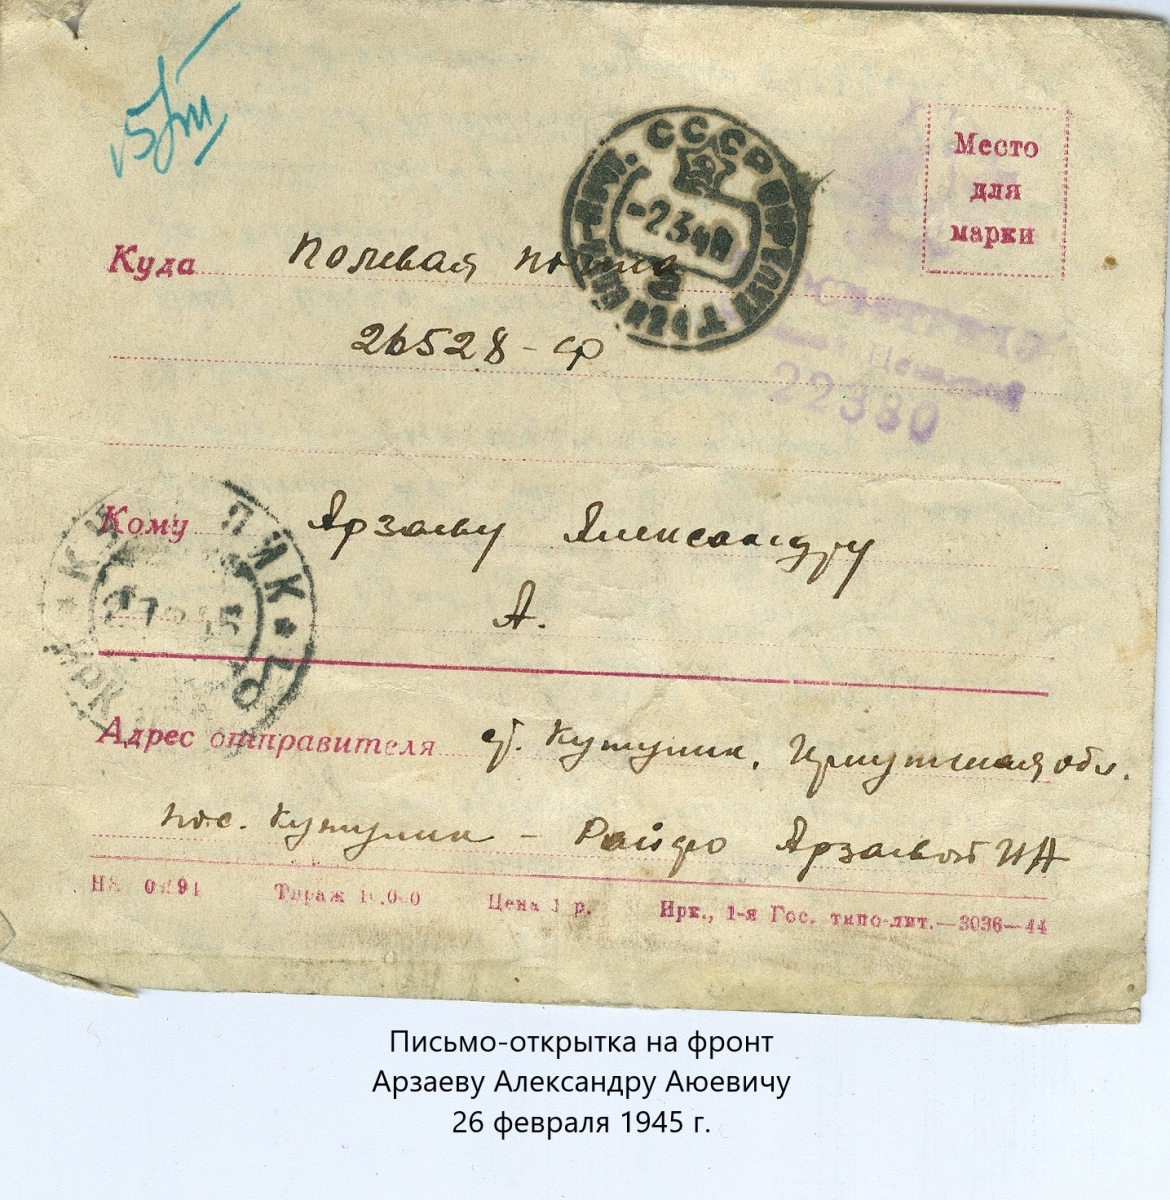 Место
для
марки
Куда Полевая почта
26528-ср
22380
Кому Арзаеву Александру
А.
Адрес отправителя ст. Кутулик, Иркутская обл.
пос. Кутулик - Райфо Арзаевой И А
Тираж Цена 1 р. Ирк., 1-я Гос. типо-лит.—3036—44
СССР
Письмо-открытка на фронт
Арзаеву Александру Аюевичу
26 февраля 1945 г.